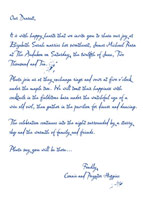 Our Dearest,
It is with happy hearts that we invite you to share our joy at
Elizabeth Sarah marries her sweetheart, James Michael Pizza
at The Parkdon on Saturday, the twelfth of June, Two
Thousand and Ten.
Please join us as they exchange rings and vows at five o'clock,
under the maple tree. We will toast their happiness with
cocktails in the fieldstone barn under the watchful eye of a
wise old owl, then gather in the pavilion for dinner and dancing.
The celebration continues into the night surrounded by a starry
sky and the warmth of family and friends.
Please say you will be there...
Fondly,
Connie and Preston Higgins